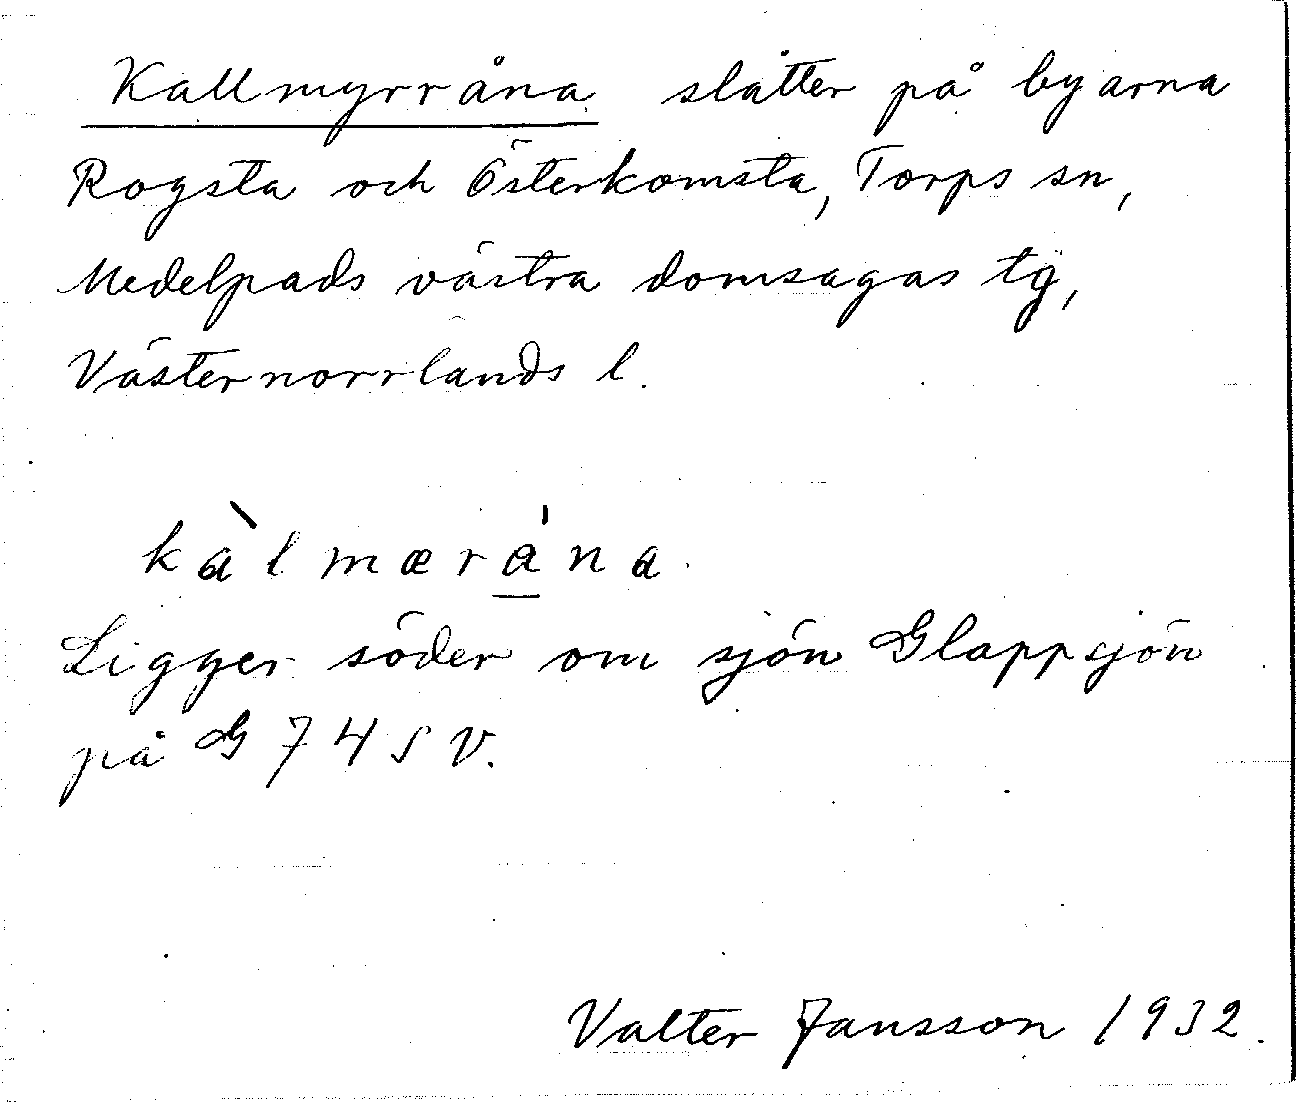 Kallmyrråna slåtter på byarna
Rogsta och Österkomsta, Torps sn,
Medelpads västra domsagas tg,
Västernorrlands l.
kàlmærána
Ligger söder om sjön Glappsjön
på G 74 S V.
Valter Jansson 1932.